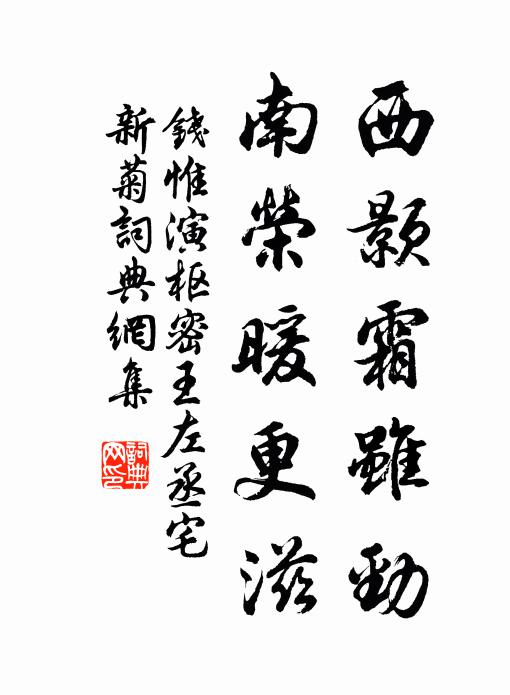 西颢霜雖勁
南榮暖更滋
錢惟演枢密王左丞宅
新菊詞典網集
詞典
网印